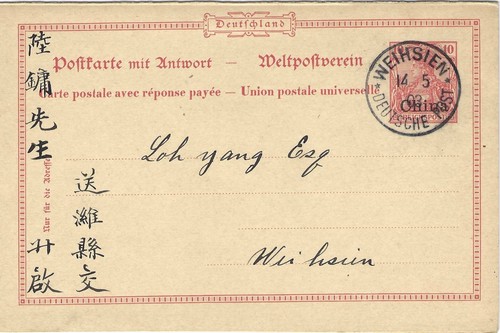 Deutschland
Postkarte mit Antwort — Weltpostverein
Carte postale avec réponse payée — Union postale universelle
WEIHSIEN
14 5
03
DEUTSCHE POST
10
China
Loh yang Esq
Weihsien
陸鏞先生 升啟
送濰縣交
Nur für die Adresse